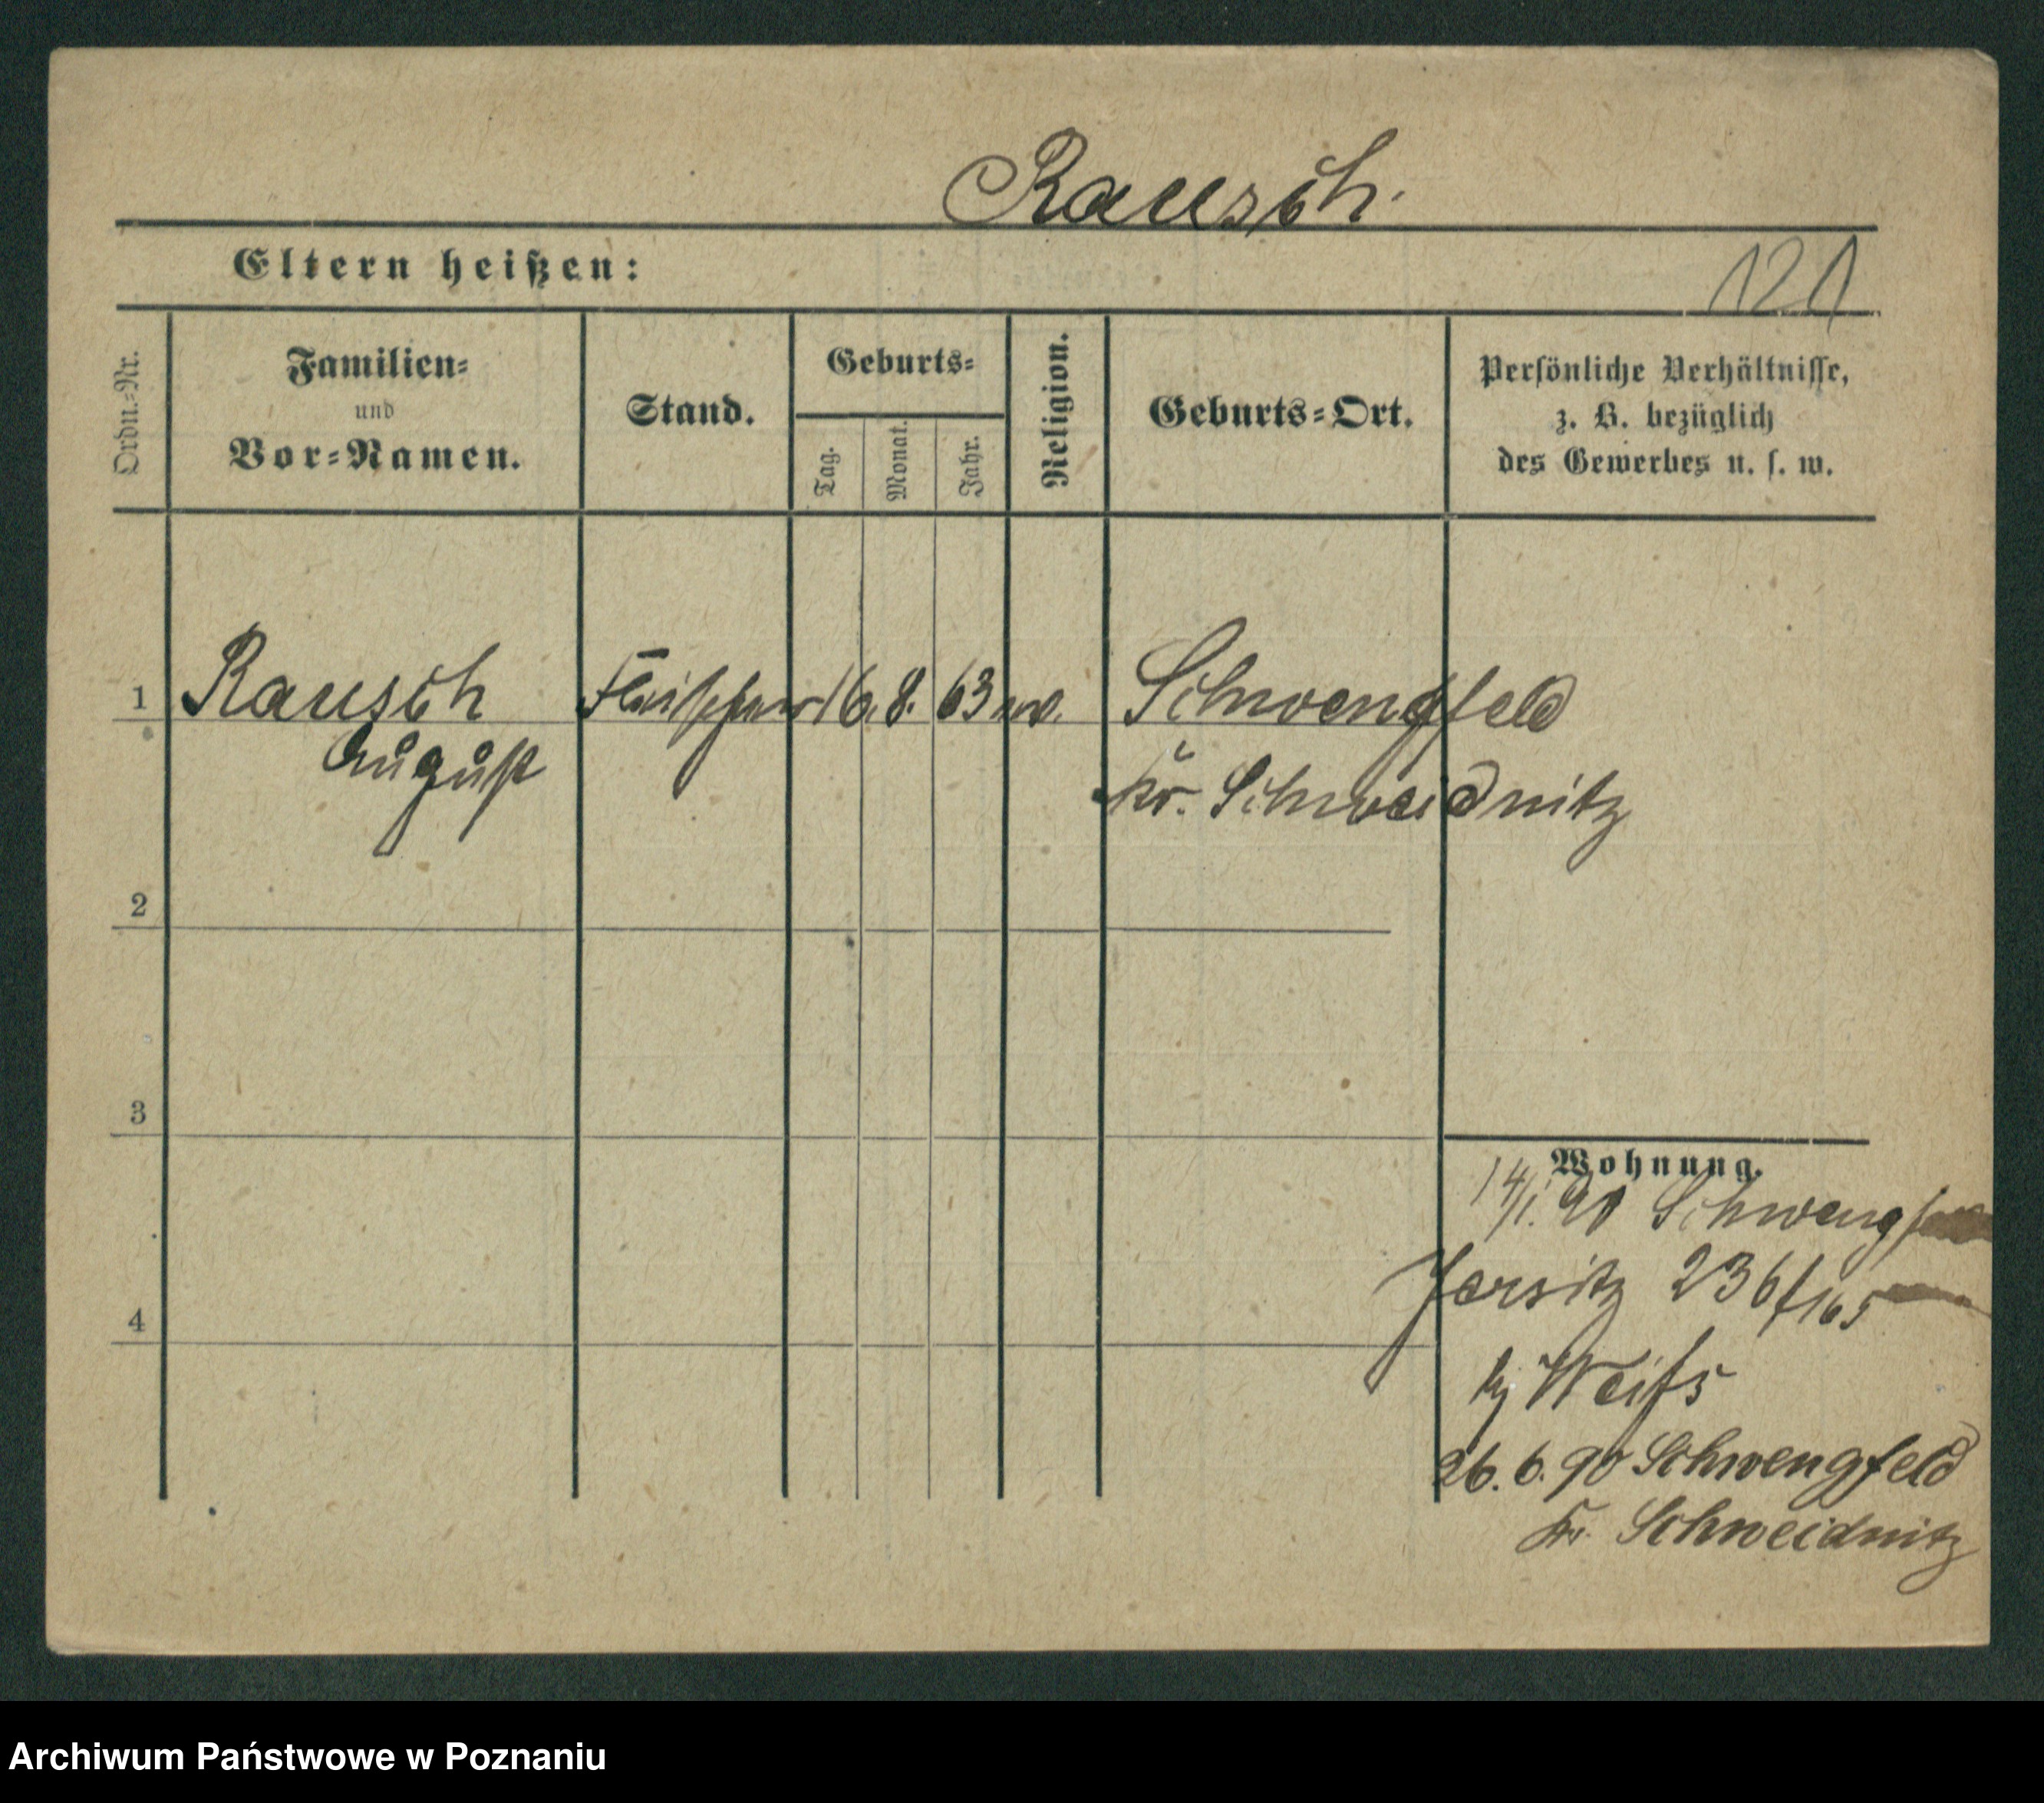 Rausch.
Eltern heißen:
121
Ordn.-Nr.
Familien-
und
Vor-Namen.
Stand.
Geburts-
Tag.
Monat.
Jahr.
Religion.
Geburts-Ort.
Persönliche Verhältnisse,
z. B. bezüglich
des Gewerbes u. s. w.
1 Rausch Fleischer 16. 8. 63 Schwengfeld
August Kr. Schweidnitz
2
3
4
Wohnung.
14/1. 90
Jersitz 236/165
b/ Weiß
26. 6. 90 Schwengfeld
Kr. Schweidnitz
Archiwum Państwowe w Poznaniu